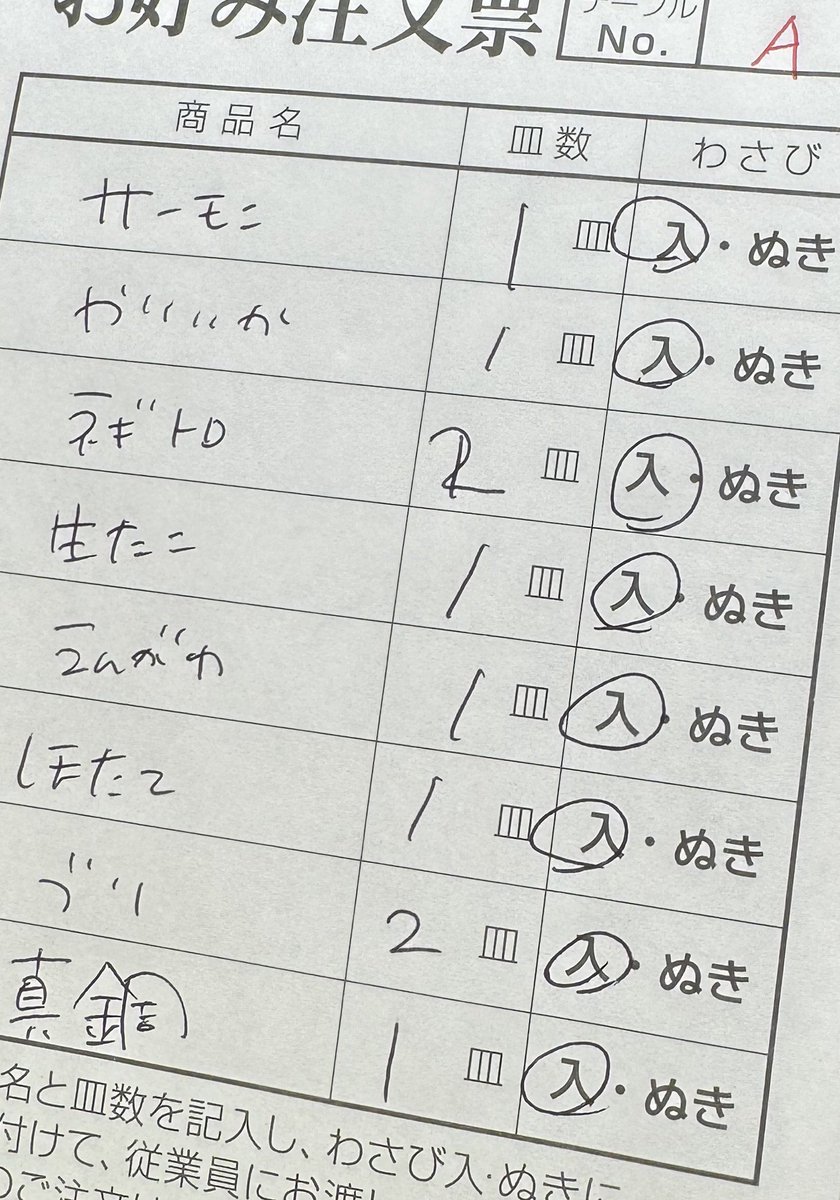 お好み注文票 テーブル No. A
商品名 皿数 わさび
サーモン 1 皿 入・ぬき
やりいか 1 皿 入・ぬき
ネギトロ 2 皿 入・ぬき
生たこ 1 皿 入・ぬき
えんがわ 1 皿 入・ぬき
ほたて 1 皿 入・ぬき
ブリ 2 皿 入・ぬき
真錭 1 皿 入・ぬき
名と皿数を記入し、わさび入・ぬきに
付けて、従業員にお渡し
のご注文は